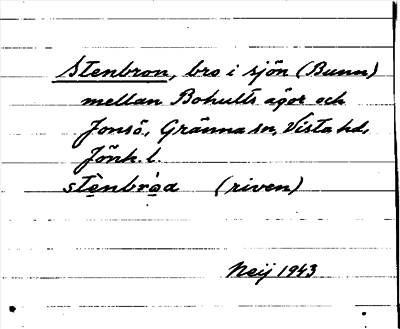 Stenbron, bro i sjön (Bunn)
mellan Bohults ägor och
Jonsö, Gränna sn, Vista hd,
Jönk. l.
stènbròa (riven)
Neij 1943